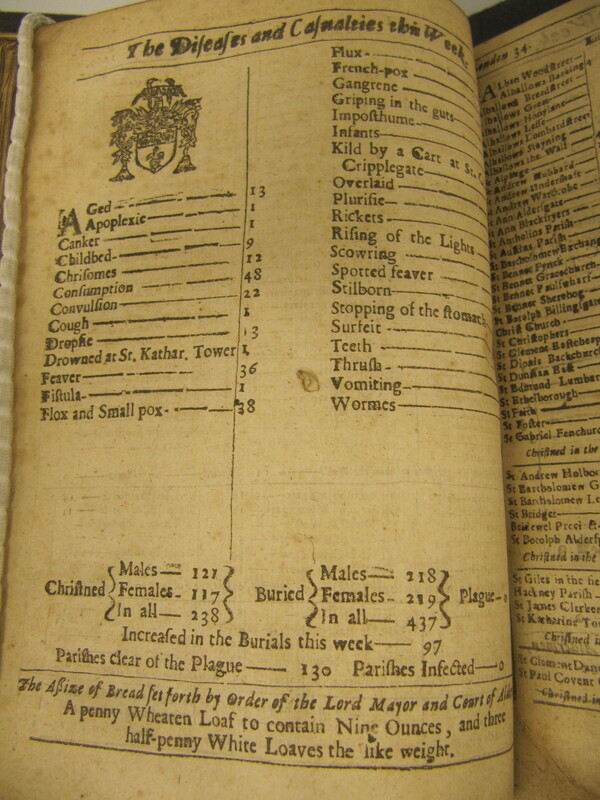 The Diſeaſes and Caſualties this Week.
AGed 13
Apoplexie 1
Canker 1
Childbed 9
Chriſomes 12
Conſumption 48
Convulſion 22
Cough 1
Dropſie 13
Drowned at St. Kathar. Tower 1
Feaver 36
Fiſtula 1
Flox and Small pox 38
Flux
French-pox
Gangrene
Griping in the guts
Impoſthume
Infants
Kild by a Cart at St.
Cripplegate
Overlaid
Pluriſie
Rickets
Riſing of the Lights
Scowring
Spotted feaver
Stilborn
Stopping of the ſtomach
Surfeit
Teeth
Thruſh
Vomiting
Wormes
Chriſtned Males 121 Females 117 In all 238
Buried Males 218 Females 219 In all 437
Plague
Increaſed in the Burials this week 97
Pariſhes clear of the Plague 130 Pariſhes Infected 0
The Aſſize of Bread ſet forth by Order of the Lord Mayor and Court of
A penny Wheaten Loaf to contain Nine Ounces, and three
half-penny White Loaves the like weight.
London 34
ALban Woodſtreet
Alhallows Barking
Alhallows Breadſtreet
Alhallows Great
Alhallows Honylane
Alhallows Leſſe
Alhallows Lombardſtreet
Alhallows Stayning
Alhallows the Wall
St Alphage
St Andrew Hubbard
St Andrew Underſhaft
St Andrew Wardrobe
St Ann Alderſgate
St Ann Blackfryers
St Antholins Pariſh
St Auſtins Pariſh
St Bartholomew Exchang
St Bennet Fynck
St Bennet Gracechurch
St Bennet Paulſwharf
St Bennet Sherehog
St Botolph Billingſgate
Chriſt Church
St Chriſtophers
St Clement Eaſtcheap
St Dionis Backchurch
St Dunſtan Eaſt
St Edmund Lumbar
St Ethelborough
St Faith
St Foſter
St Gabriel Fenchurc
Chriſtned in the
St Andrew Holbor
St Bartholomew G
St Bartholomew Le
St Bridget
Bridewel Preci
St Botolph Alderſ
Chriſtned in the
St Giles in the fie
Hackney Pariſh
St James Clerken
St Katharine To
Chriſtned in
St Clement Dan
St Paul Covent
Chriſtned in